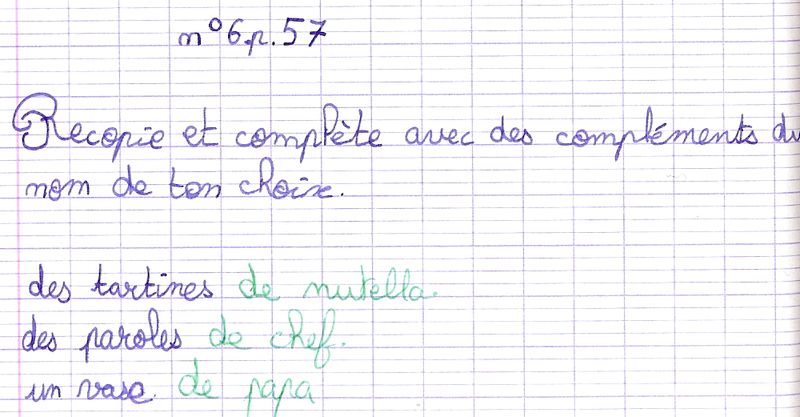 n°6 p.57
Recopie et complète avec des compléments du
nom de ton choix.
des tartines de nutella.
des paroles de chef.
un vase de papa